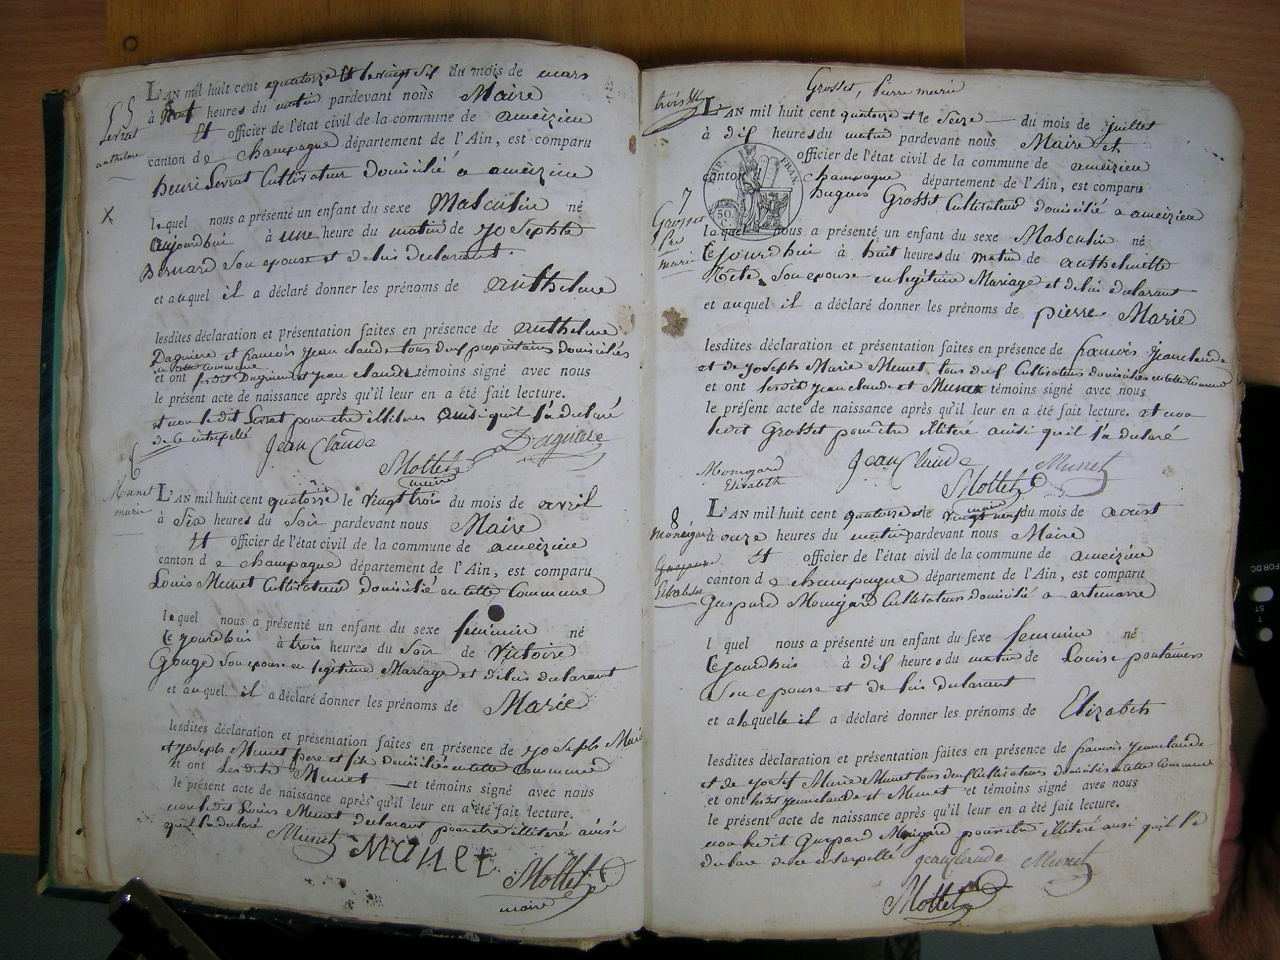 5
Serrat
anthelme
L'AN mil huit cent quatorze et le vingt six du mois de mars
à huit heures du matin pardevant nous Maire
et officier de l'état civil de la commune de ameizieu
canton de champagne département de l'Ain, est comparu
henri Serrat Cultivateur domicilié a ameizieu
lequel nous a présenté un enfant du sexe Masculin né
aujourdhui à une heure du matin de Josephte
Bernard son epouse et de lui declarant.
et auquel il a déclaré donner les prénoms de anthelme
lesdites déclaration et présentation faites en présence de anthelme
Daguiere et francois jean claude tous deux proprietaires domiciliés
en cette commune
et ont lesdit Daguiere et jean claude témoins signé avec nous
le présent acte de naissance après qu'il leur en a été fait lecture.
et non le dit Serrat pour etre illitere ainsi quil la declaré
de ce interpellé
Jean Claude
Daguiere
Mottet
maire
6
Munet
marie
L'AN mil huit cent quatorze le vingt trois du mois de avril
à six heures du soir pardevant nous Maire
et officier de l'état civil de la commune de ameizieu
canton de champagne département de l'Ain, est comparu
Louis Munet Cultivateur domicilié en cette Commune
lequel nous a présenté un enfant du sexe feminin né
Cejourdhui à trois heures du soir de Victoire
Gouge son epouse en legitime Mariage et de lui declarant
et auquel il a déclaré donner les prénoms de Marie
lesdites déclaration et présentation faites en présence de Joseph Marie
et joseph Munet pere et fils domiciliés en cette Commune
et ont lesdits Munet et témoins signé avec nous
le présent acte de naissance après qu'il leur en a été fait lecture.
non le dit Louis Munet declarant pour etre illiteré ainsi
quil la declaré
Munet
Munet
Mottet
maire
Grosset, pierre marie
7
Grosset
pre
marie
L'AN mil huit cent quatorze et le seize du mois de juillet
à dix heures du matin pardevant nous Maire et
officier de l'état civil de la commune de ameizieu
canton de champagne département de l'Ain, est comparu
hugues Grosset Cultivateur domicilié a ameizieu
lequel nous a présenté un enfant du sexe Masculin né
Cejourdhui à huit heures du matin de anthelmette
son epouse en legitime Mariage et de lui declarant
et auquel il a déclaré donner les prénoms de pierre Marie
lesdites déclaration et présentation faites en présence de francois jean claude
et de joseph Marie Munet tous deux Cultivateurs domiciliés en cette Commune
et ont lesdit jean claude et Munet témoins signé avec nous
le présent acte de naissance après qu'il leur en a été fait lecture. et non
ledit Grosset pour etre illiteré ainsi quil la declaré
Jean Claude
Munet
Mottet
maire
Monigard
Elizabeth
8
Elizabeth
L'AN mil huit cent quatorze et le vingt neuf du mois de aoust
à onze heures du matin pardevant nous Maire
et officier de l'état civil de la commune de ameizieu
canton de champagne département de l'Ain, est comparu
Gaspard Monigard Cultivateur domicilié a artemare
lequel nous a présenté un enfant du sexe feminin né
Cejourdhui à dix heures du matin de Louise
son epouse et de lui declarant
et a laquelle il a déclaré donner les prénoms de Elizabeth
lesdites déclaration et présentation faites en présence de francois jean claude
et de josef Marie Munet tous deux Cultivateurs domiciliés en cette Commune
et ont lesdit jean claude et Munet et témoins signé avec nous
le présent acte de naissance après qu'il leur en a été fait lecture.
non le dit Gaspard Monigard pour etre illiteré ainsi quil la
declaré de ce interpellé
Jean Claude
Munet
Mottet